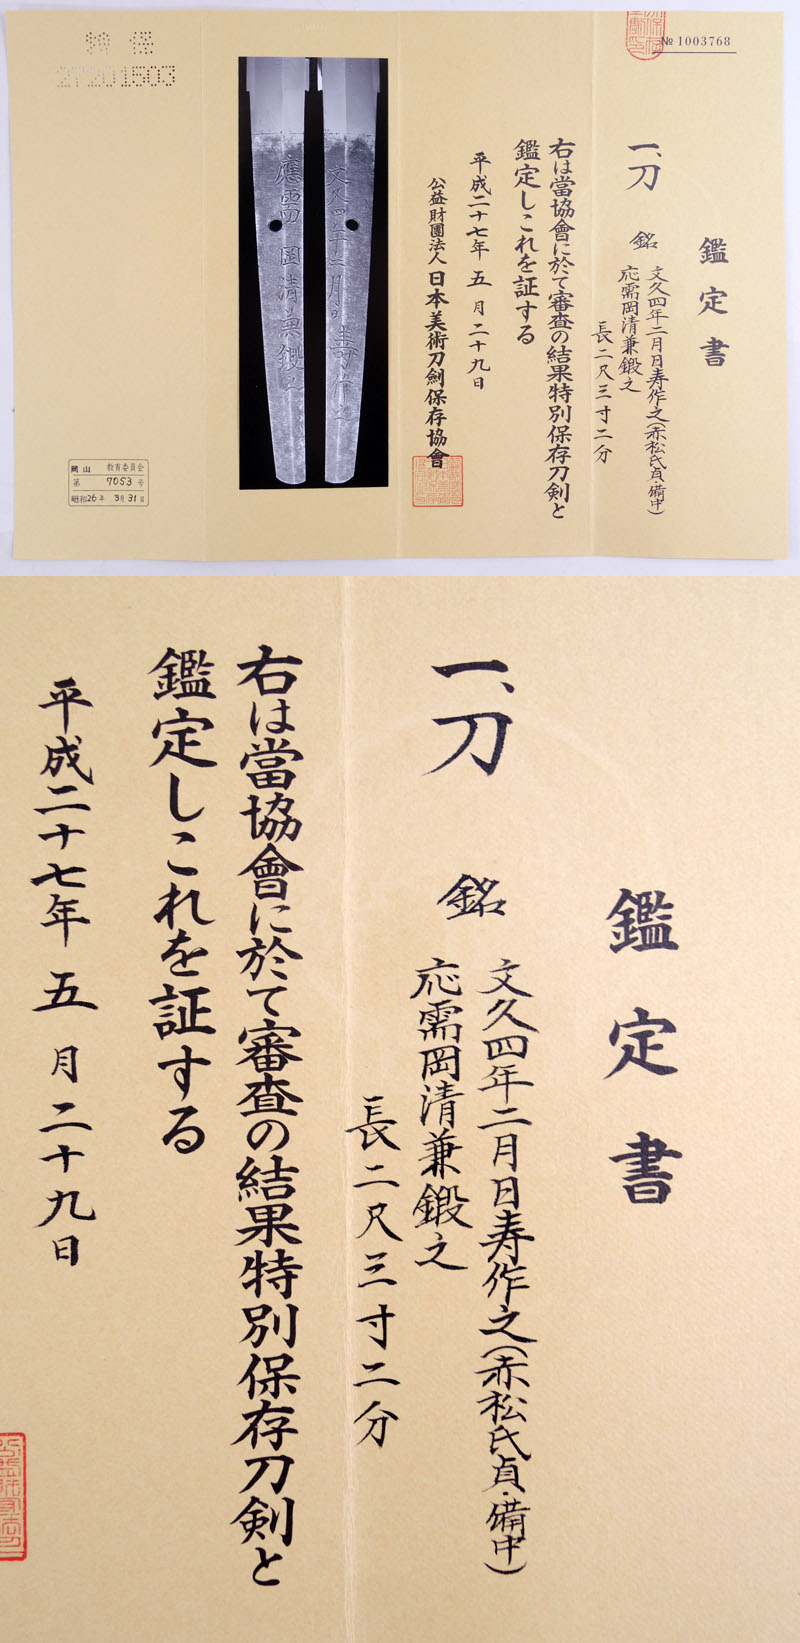 № 1003768
鑑定書
一、刀 銘 文久四年二月日寿作之(赤松氏貞・備中)
応需岡清兼鍛之
長二尺三寸二分
右は當協會に於て審査の結果特別保存刀剣と
鑑定しこれを証する
平成二十七年五月二十九日
公益財團法人日本美術刀劍保存協會
文久四年二月日 壽作之
應需 岡清兼鍛之
特保
27201503
岡山 教育委員会
第 7053 号
昭和26年 3月31日
鑑定書
一、刀 銘 文久四年二月日寿作之(赤松氏貞・備中)
応需岡清兼鍛之
長二尺三寸二分
右は當協會に於て審査の結果特別保存刀剣と
鑑定しこれを証する
平成二十七年五月二十九日